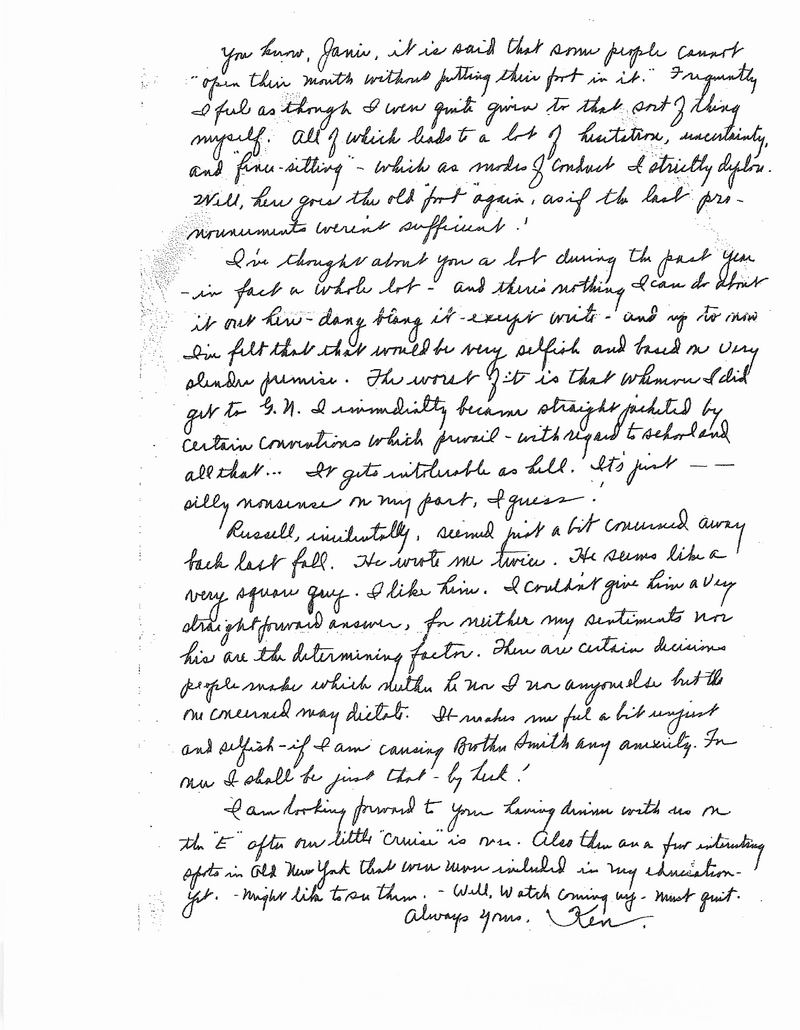 You know, Janie, it is said that some people cannot
"open their mouth without putting their foot in it." Frequently
I feel as though I were quite given to that sort of thing
myself. All of which leads to a lot of hesitation, uncertainty,
and "fence-sitting" - which as modes of conduct I strictly deplore.
Well, here goes the old "foot" again, as if the last pro-
nouncements weren't sufficient!
I've thought about you a lot during the past year
- in fact a whole lot - and there's nothing I can do about
it out here - dang blang it - except write - and up to now
I've felt that that would be very selfish and based on very
slender premise. The worst of it is that whenever I did
get to G.N. I immediatly became straight jacketed by
certain conventions which prevail - with regard to school and
all that... It gets intolerable as hell. It's just — —
silly nonsense on my part, I guess!
Russell, incidentally, seemed just a bit concerned away
back last fall. He wrote me twice. He seems like a
very square guy. I like him. I couldn't give him a very
straightforward answer, for neither my sentiments nor
his are the determining factor. There are certain decisions
people make which neither he nor I nor anyone else but the
one concerned may dictate. It makes me feel a bit unjust
and selfish - if I am causing Brother Smith any anxiety. For
me I shall be just that - by heck!
I am looking forward to your having dinner with us on
the "E" after our little "cruise" is over. Also there are a few interesting
spots in Old New York that were never included in my education -
yet. - Might like to see them. - Well, Watch coming up - must quit.
Always Yours, Ken.